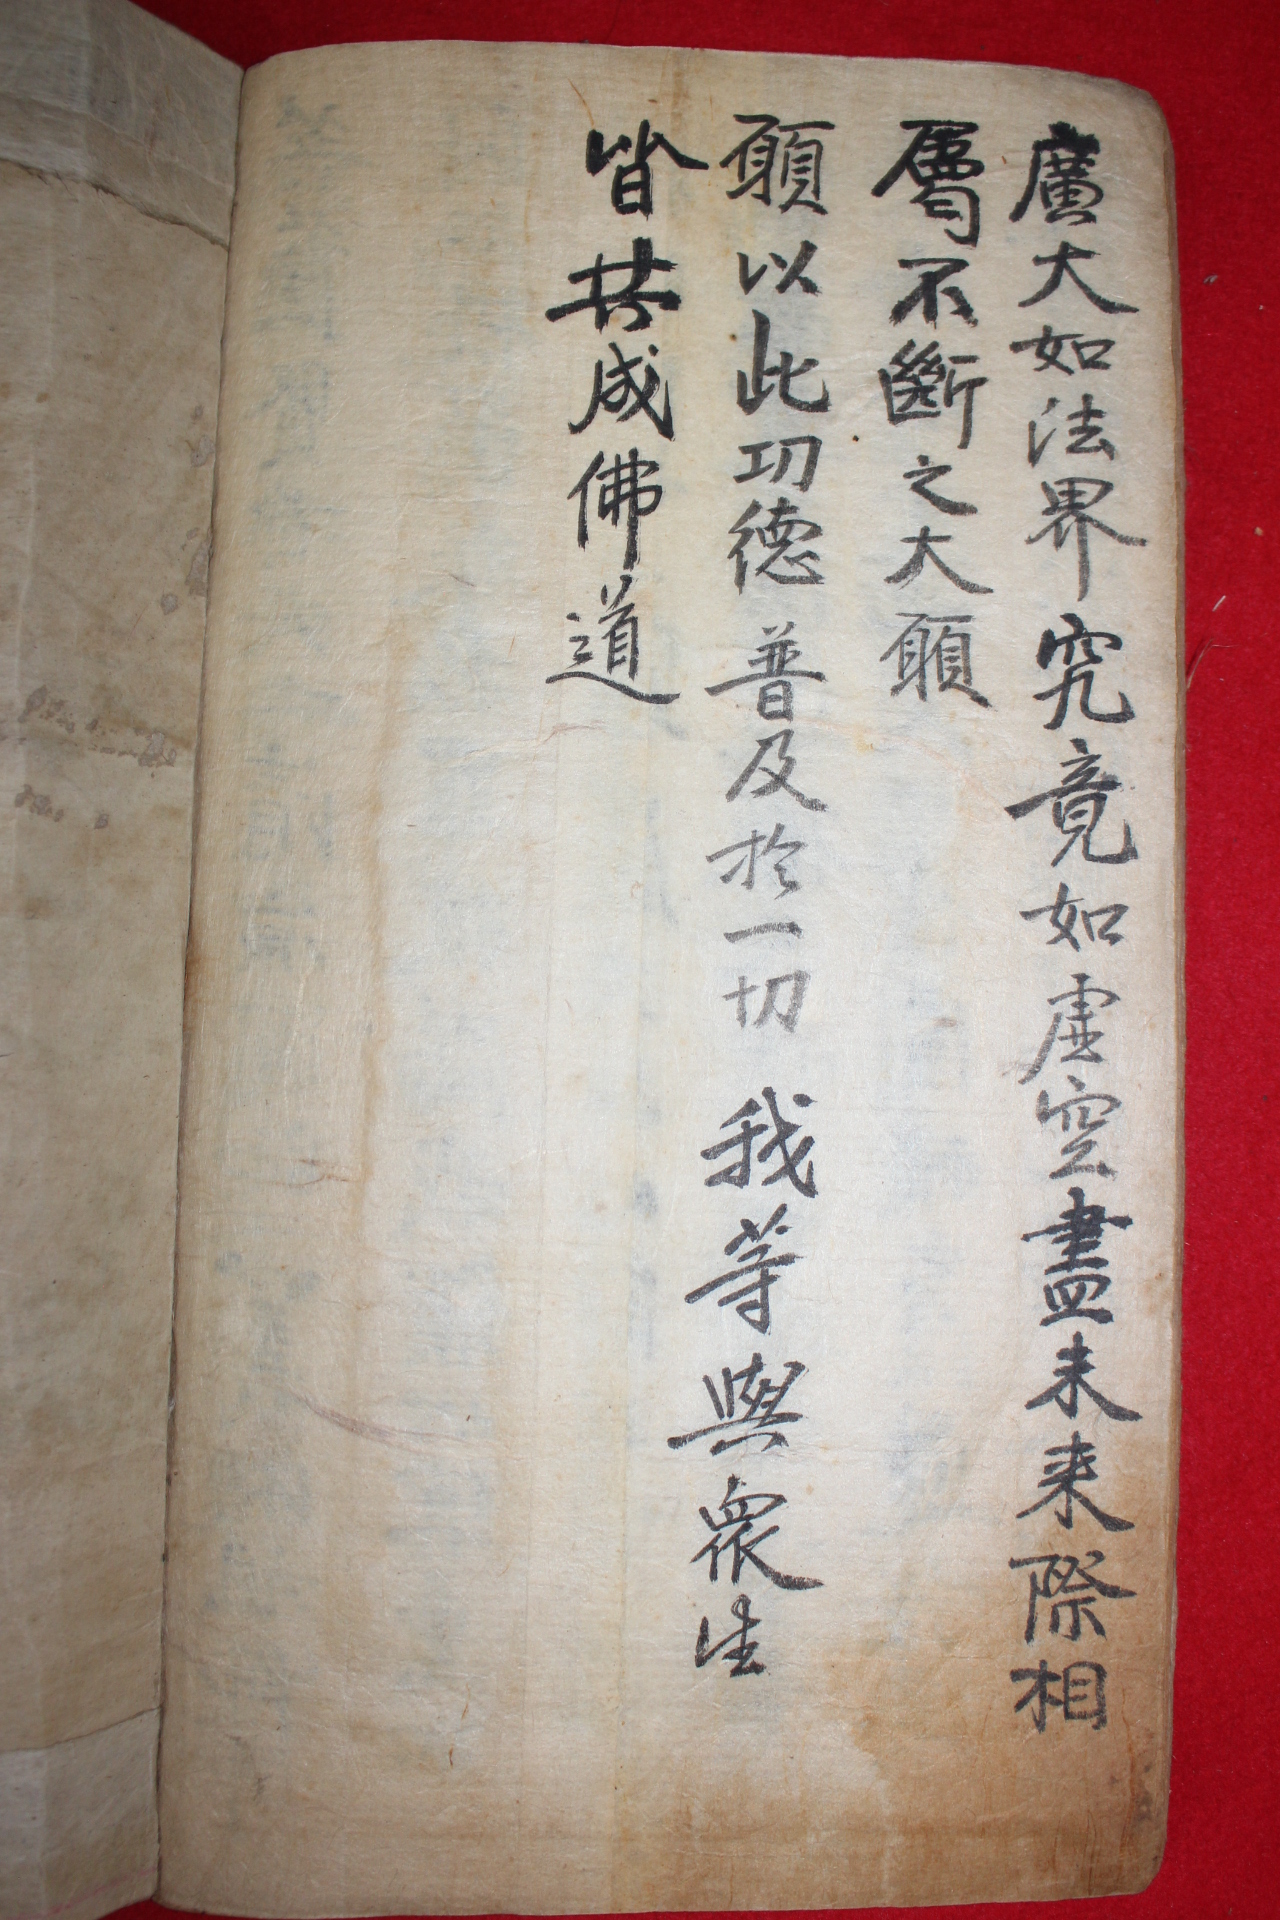 廣大如法界究竟如虛空盡未來際相
屬不斷之大願
願以此功德 普及於一切 我等與衆生
皆共成佛道